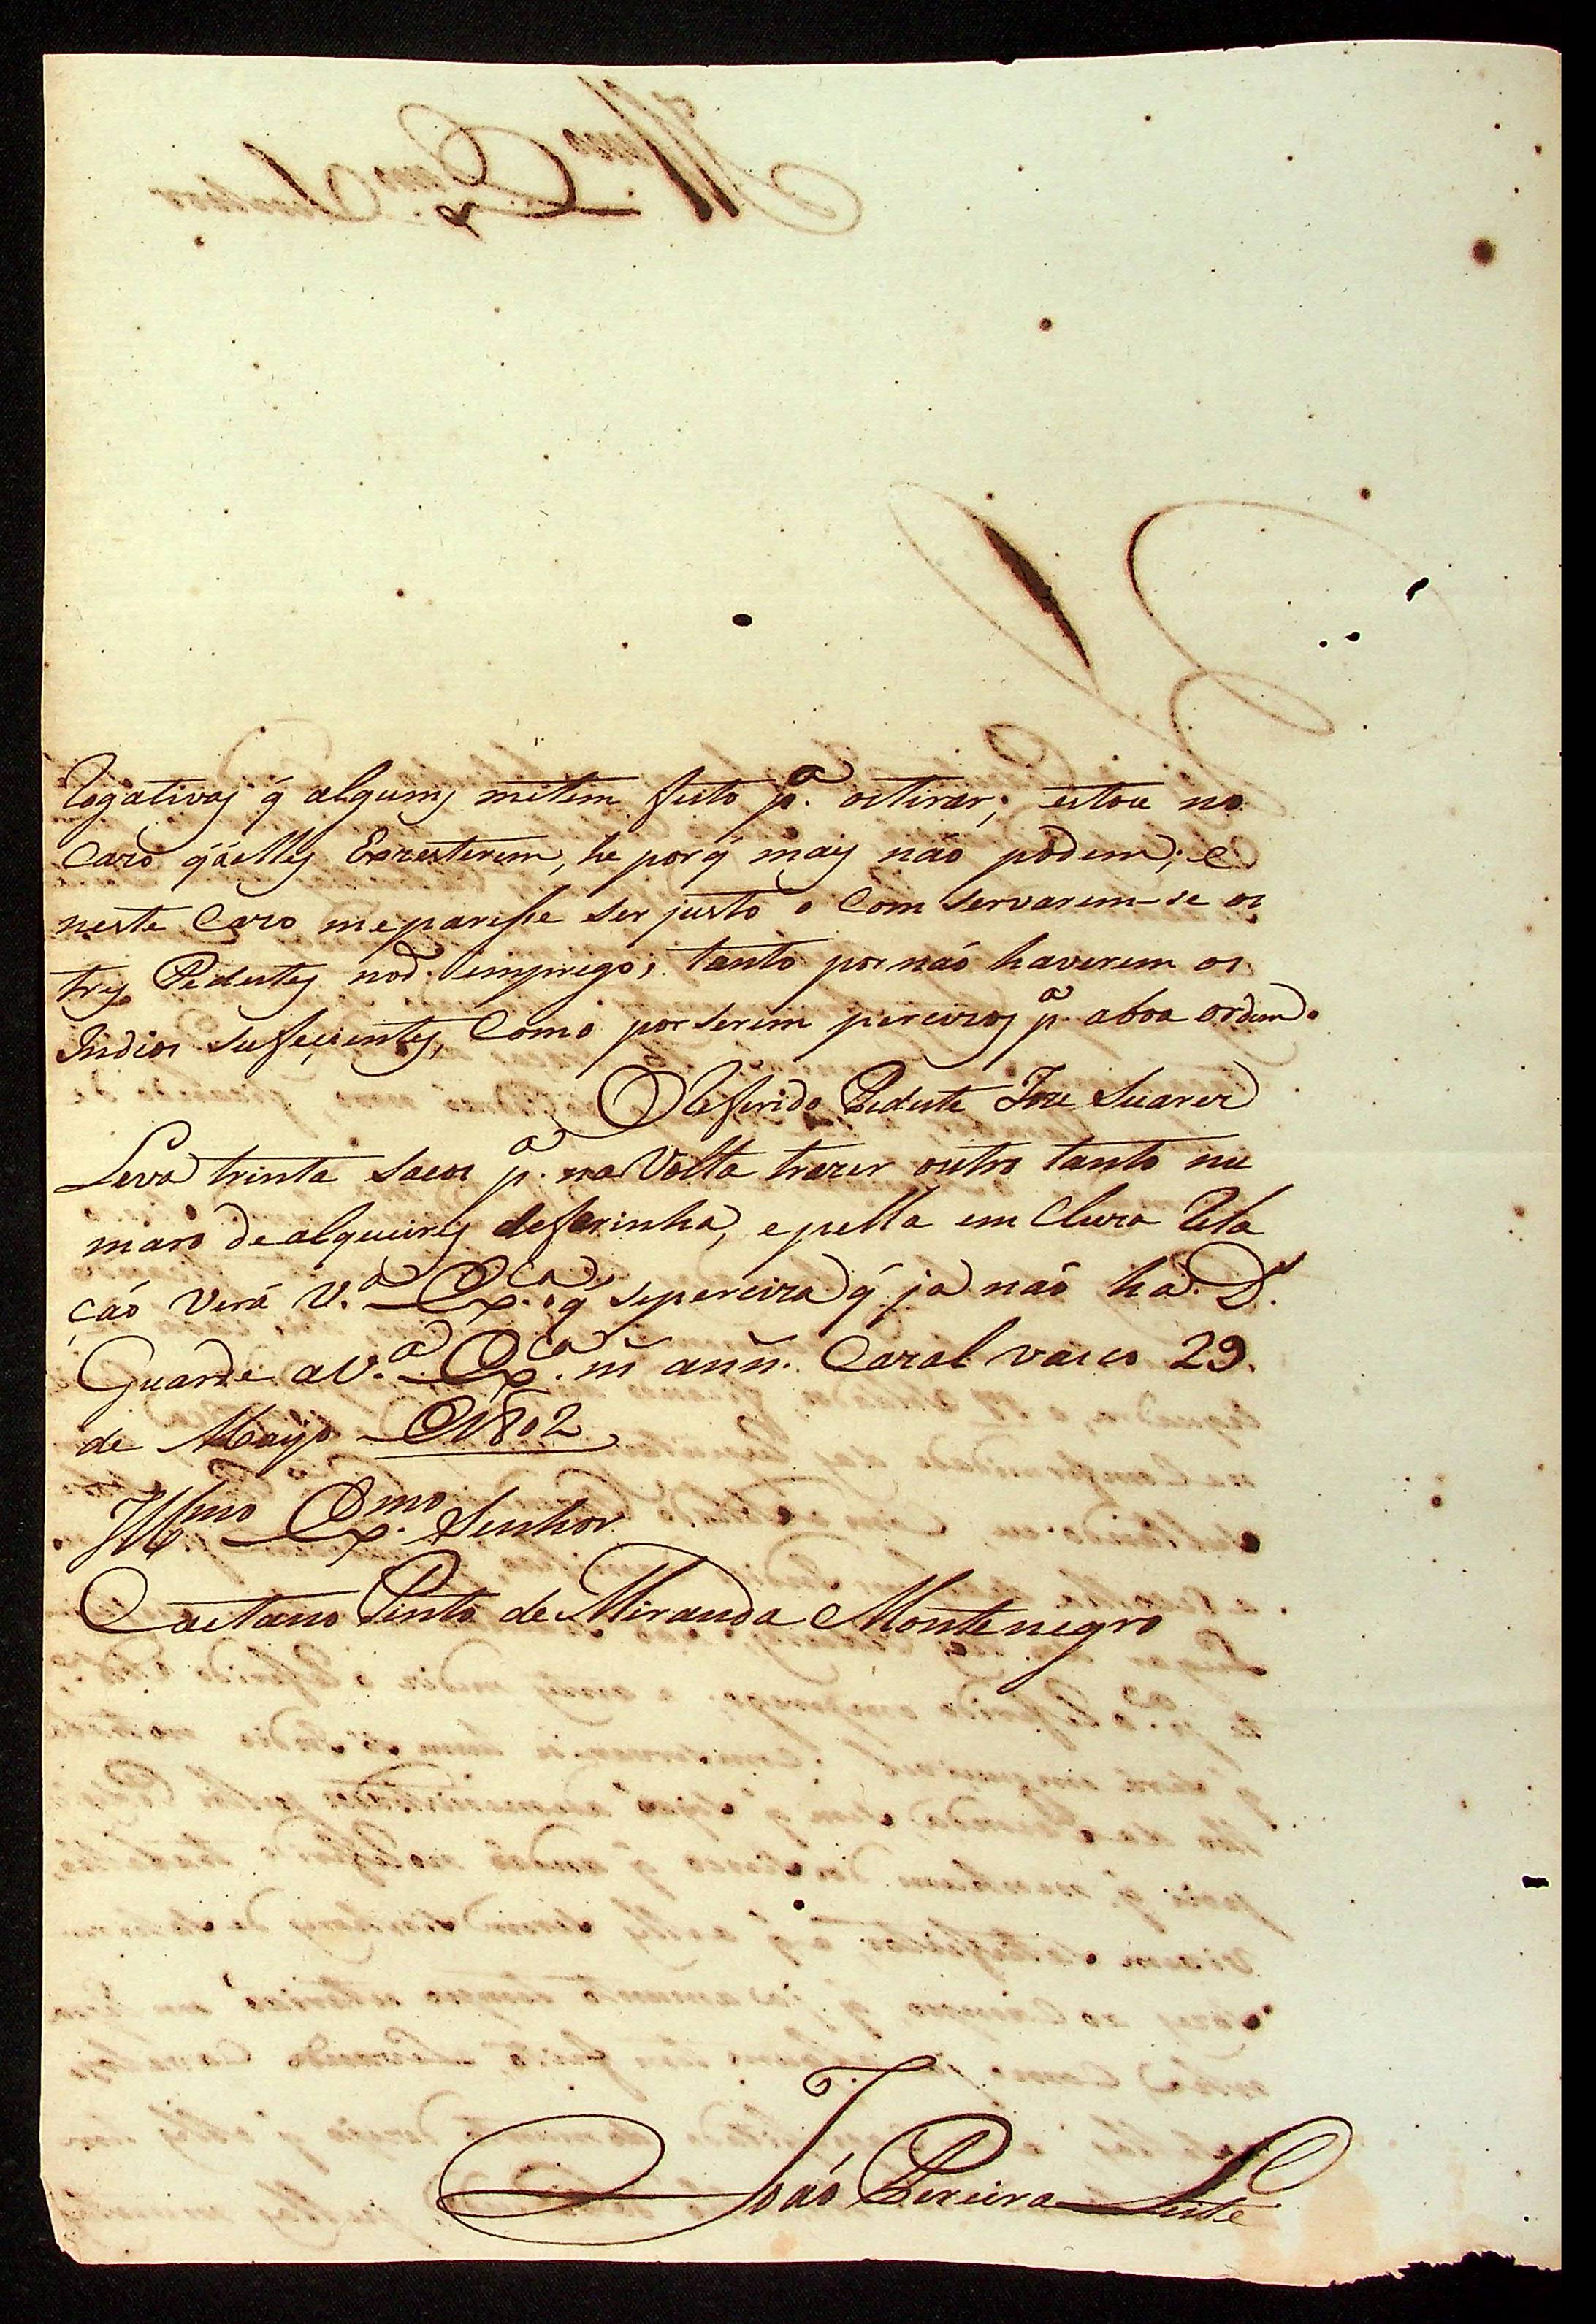 rogativas q̃ alguns metem feito p.ª os tirar; estou no
Cazo q̃ aelles Exzesterem, he por q̃ mais não podem; e
neste Cazo me parese ser justo o Com servarem-se os
tres Pedestes no d.º emprego; tanto por não haverem os
Indios sufecientes, Como por serem percizos p.ª aboa ordem.
O Referido Pedeste Joze Suarez
Leva trinta sacos p.ª na Volta trazer outro tanto nu
maro de alqueires defarinha, e pella em Cluza Rela
ção verá V.ª Ex.ᶜᵃ o q̃ sepreciza q̃ ja não ha. D.ˢ
Guarde a V.ª Ex.ᶜᵃ m̃ ann̄. Cazal vasco 29.
de Mayo 1802
Ill.ᵐᵒ Ex.ᵐᵒ Senhor
Caetano Pinto de Miranda Montenegro
João Pereira Leite